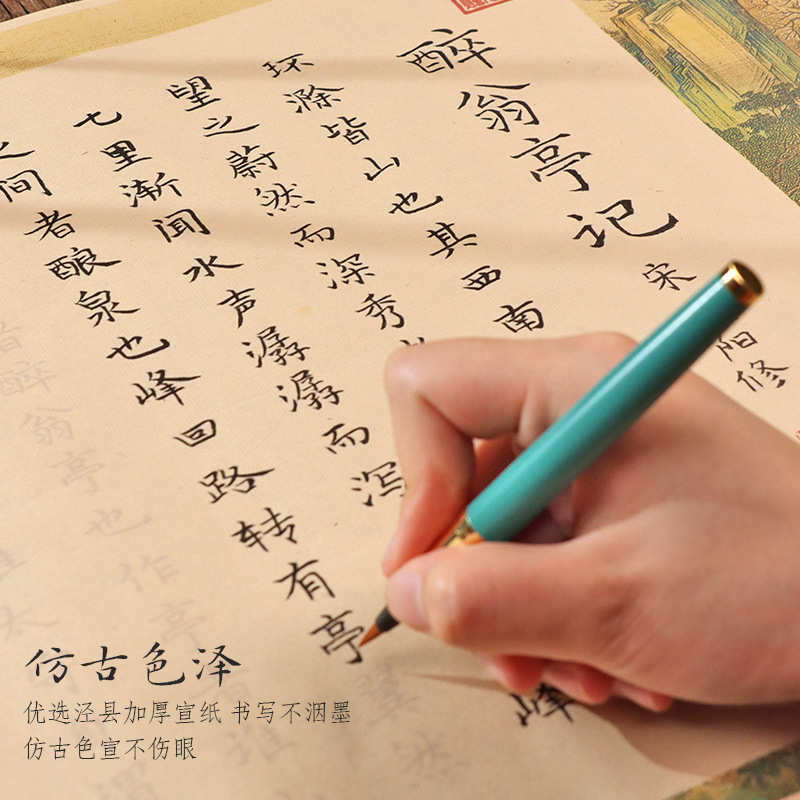 醉翁亭记
宋
阳修
环滁皆山也其西南
望之蔚然而深秀
七里渐闻水声潺潺而泻
之间者酿泉也峰回路转有亭
峰
翁亭也作亭
仿古色泽
优选泾县加厚宣纸 书写不洇墨
仿古色宣不伤眼